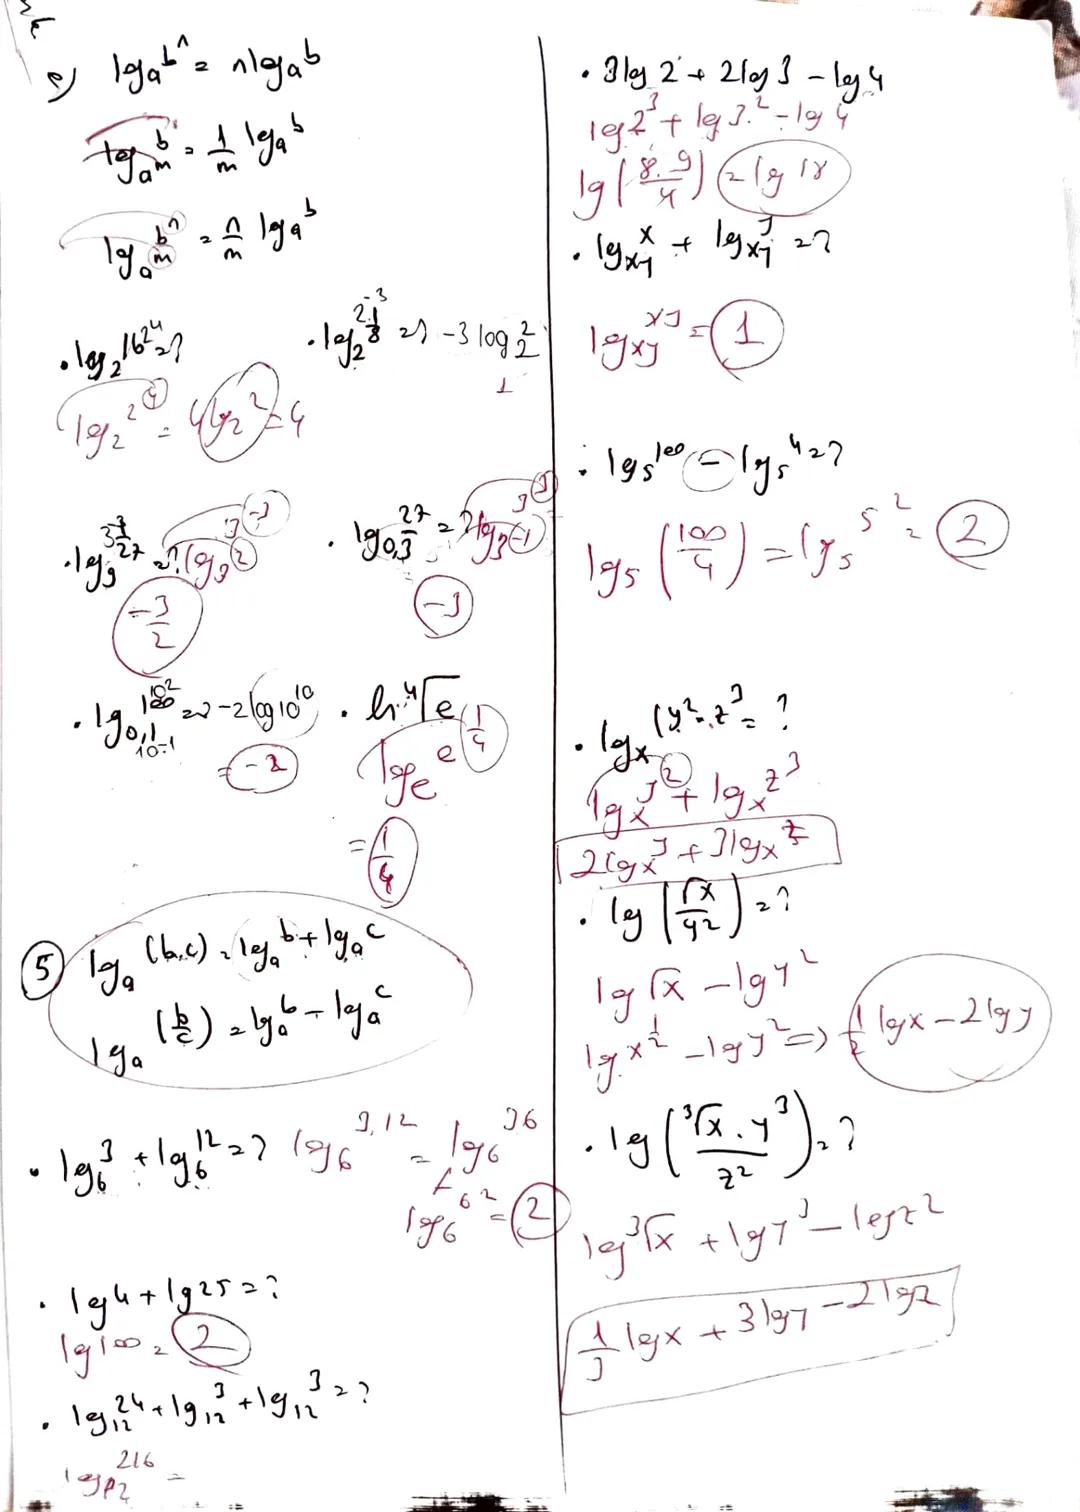 log_a b^n = n log_a b
log_{a^m} b = 1/m log_a b
log_{a^m} b^n = n/m log_a b
• log_2 16 2^4 = ?
log_2 2^4 = 4 log_2 2 = 4
• log_2 1/8 2^-3 = ? -3 log_2 2
1
• log_9 1/27 = ? log_{3^2} 3^-3
-3/2
• log_{0,3} 27 = ? log_{3^-1} 3^3
-3
• log_{0,1} 100 10^2 = ? -2 log 10^10
10^-1
= -2
• ln ⁴√e
log_e e^{1/4}
= 1/4
5) log_a (b.c) = log_a b + log_a c
log_a (b/c) = log_a b - log_a c
• log_6 3 + log_6 12 = ? log_6 3.12 = log_6 36
log_6 6^2 = 2
• log 4 + lg 25 = ?
lg 100 = 2
• log_12 24 + log_12 3 + log_12 3 = ?
log_12 216 =
• 3 log 2 + 2 log 3 - log 4
log 2^3 + log 3^2 - log 4
log (8.9/4) = log 18
• log_xy x + log_xy y = ?
log_xy xy = 1
• log_5 100 - log_5 4 = ?
log_5 (100/4) = log_5 5^2 = 2
• log_x (y^2.z^3 = ?
log_x y^2 + log_x z^3
2 log_x y + 3 log_x z
• log (√x/y^2) = ?
log √x - log y^2
log x^{1/2} - log y^2 => 1/2 log x - 2 log y
• log (³√x . y^3 / z^2) = ?
log ³√x + log y^3 - log z^2
1/3 log x + 3 log y - 2 log z